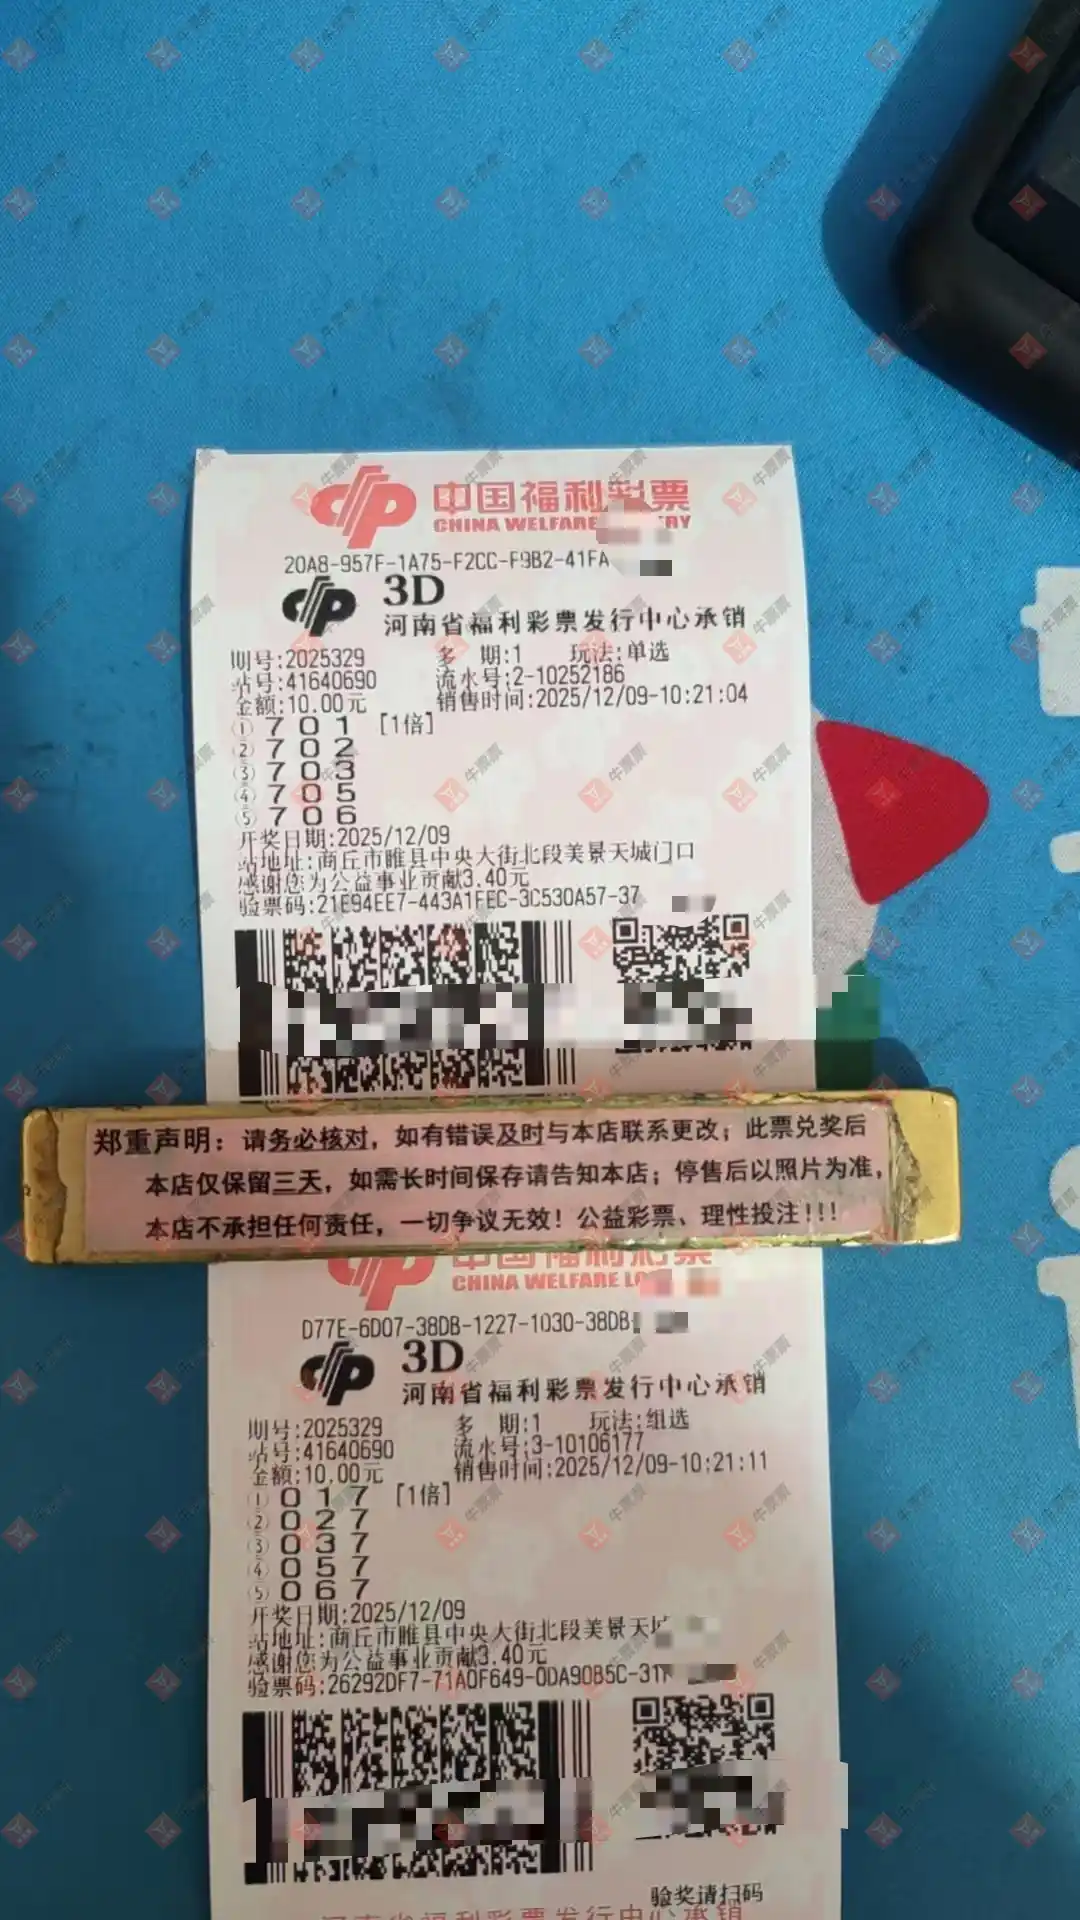 中国福利彩票
CHINA WELFARE
20A8-957F-1A75-F2CC-F9B2-41FA
3D
河南省福利彩票发行中心承销
期号:2025329 多 期:1 玩法:单选
站号:41640690 流水号:2-10252186
金额:10.00元 销售时间:2025/12/09-10:21:04
① 7 0 1 [1倍]
② 7 0 2
③ 7 0 3
④ 7 0 5
⑤ 7 0 6
开奖日期:2025/12/09
站地址:商丘市睢县中央大街北段美景天城门口
感谢您为公益事业贡献3.40元
验票码:21E94EE7-443A1FEC-3C530A57-37
郑重声明：请务必核对，如有错误及时与本店联系更改；此票兑奖后
本店仅保留三天，如需长时间保存请告知本店；停售后以照片为准，
本店不承担任何责任，一切争议无效！公益彩票、理性投注!!!
中国福利彩票
CHINA WELFARE
D77E-6D07-38DB-1227-1030-38DB
3D
河南省福利彩票发行中心承销
期号:2025329 多 期:1 玩法:组选
站号:41640690 流水号:3-10106177
金额:10.00元 销售时间:2025/12/09-10:21:11
① 0 1 7 [1倍]
② 0 2 7
③ 0 3 7
④ 0 5 7
⑤ 0 6 7
开奖日期:2025/12/09
站地址:商丘市睢县中央大街北段美景天
感谢您为公益事业贡献3.40元
验票码:26292DF7-71A0F649-0DA90B5C-31
验奖请扫码
河南省福利彩票发行中心承销
牛票票